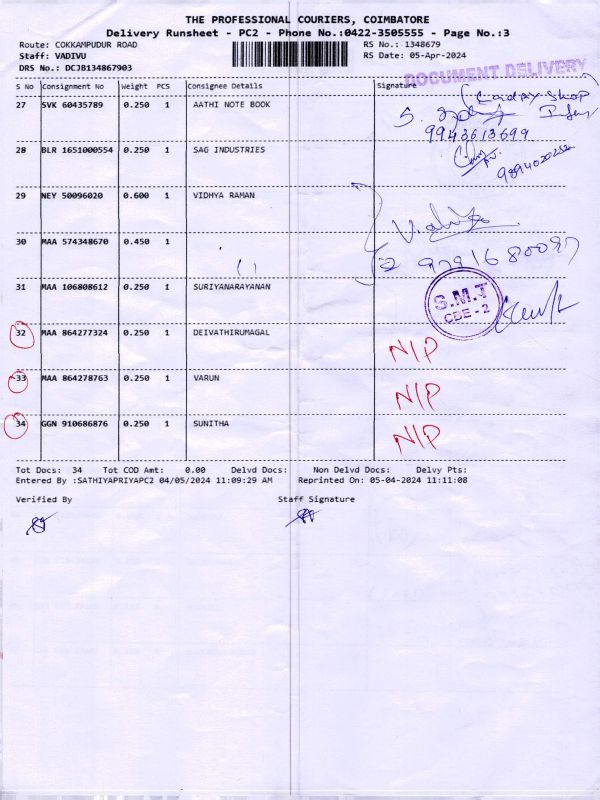 THE PROFESSIONAL COURIERS, COIMBATORE
Delivery Runsheet - PC2 - Phone No.:0422-3505555 - Page No.:3
Route: COKKAMPUDUR ROAD RS No.: 1348679
Staff: VADIVU RS Date: 05-Apr-2024
DRS No.: DCJB134867903
DOCUMENT DELIVERY
S No Consignment No Weight PCS Consignee Details Signature
27 SVK 60435789 0.250 1 AATHI NOTE BOOK
9943613699
28 BLR 1651000554 0.250 1 SAG INDUSTRIES
29 NEY 50096020 0.600 1 VIDHYA RAMAN
30 MAA 574348670 0.450 1
31 MAA 106808612 0.250 1 SURIYANARAYANAN
S.M.T
CBE - 2
32 MAA 864277324 0.250 1 DEIVATHIRUMAGAL N/P
33 MAA 864278763 0.250 1 VARUN N/P
34 GGN 910686876 0.250 1 SUNITHA N/P
Tot Docs: 34 Tot COD Amt: 0.00 Delvd Docs: Non Delvd Docs: Delvy Pts:
Entered By :SATHIYAPRIYAPC2 04/05/2024 11:09:29 AM Reprinted On: 05-04-2024 11:11:08
Verified By Staff Signature